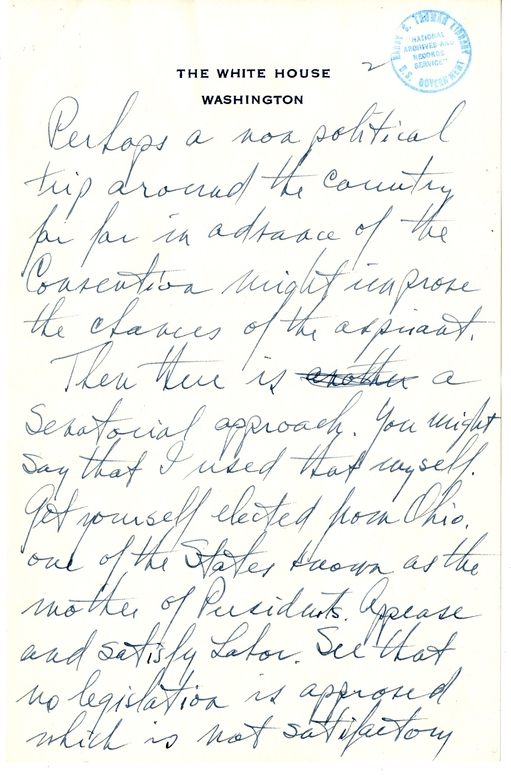 HARRY S. TRUMAN LIBRARY
"NATIONAL
ARCHIVES AND
RECORDS
SERVICE"
U.S. GOVERNMENT
2
THE WHITE HOUSE
WASHINGTON
Perhaps a non political
trip around the country
for far in advance of the
Convention might improve
the chances of the aspirant.
Then there is another a
Senatorial approach. You might
say that I used that myself.
Get yourself elected from Ohio,
one of the States known as the
mother of Presidents. Appease
and satisfy Labor. See that
no legislation is approved
which is not satisfactory